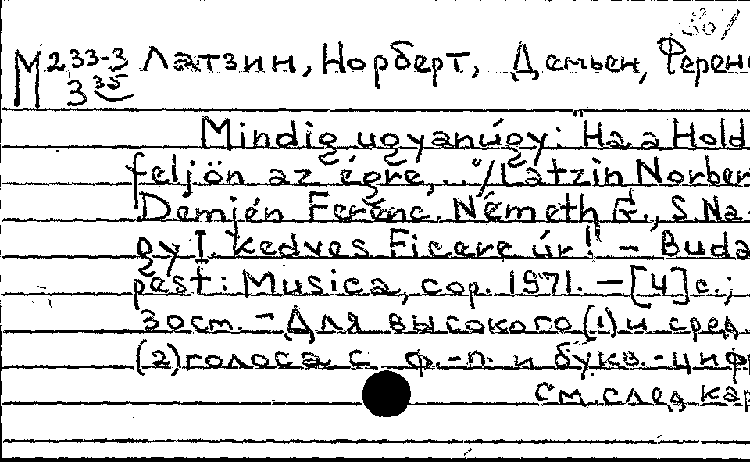 361
М 233-3 Латзин, Норберт, Демьен, Ферен
3 35
Mindig ugyanúgy: "Ha a Hold
feljön az égre,.."/Latzin Norber
Demjén Ferenc. Németh G., S. Na-
gy I. Kedves Ficere úr! – Buda-
pest: Musica, cop. 1971. – [4] с.;
30см. – Для высокого (1) и сред
(2) голоса с ф.-п. и букв.-циф
см. след кар